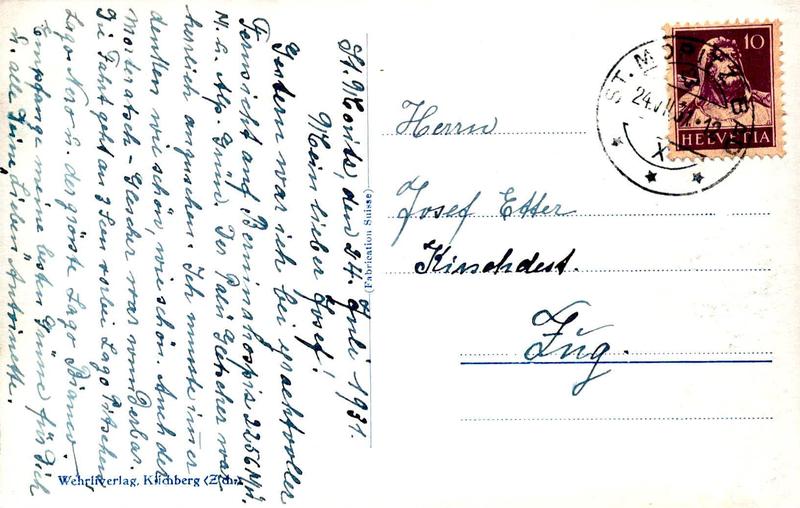 St. Moritz, den 24. Juli 1931.
Mein lieber Josef!
Gestern war ich bei prachtvoller
Fernsicht auf Berninahospiz 2256 M. ü.
M. b. Alp. Grüm. Der Palü Gletscher war
herrlich anzusehen. Ich musste immer
denken wie schön, wie schön. Auch der
Morteratsch-Gletscher war wunderbar.
Die Fahrt geht an 3 Seen vorbei Lago Pitschen
Lago Nero & der grösste Lago Bianco.
Empfange meine besten Grüsse für Dich
& alle Deine Lieben Antoinette.
(Fabrication Suisse)
Wehrliverlag, Kilchberg (Zch.)
ST. MORITZ BAD
24.VII.31.-12
X
10
HELVETIA
Herrn
Josef Etter
Kirschdest.
Zug.